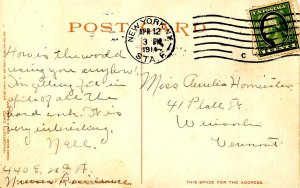 POST CARD
NEW YORK, N.Y.
APR 12
3 PM
1914
STA.
C
How is the world
using you anyhow?
I'm getting fat in
spite of all the
hard work. It is
very interesting.
Nell.
440 E. 26th St.
Miss Amelia
41 Platt St.
Winooski
Vermont
THIS SPACE FOR THE ADDRESS